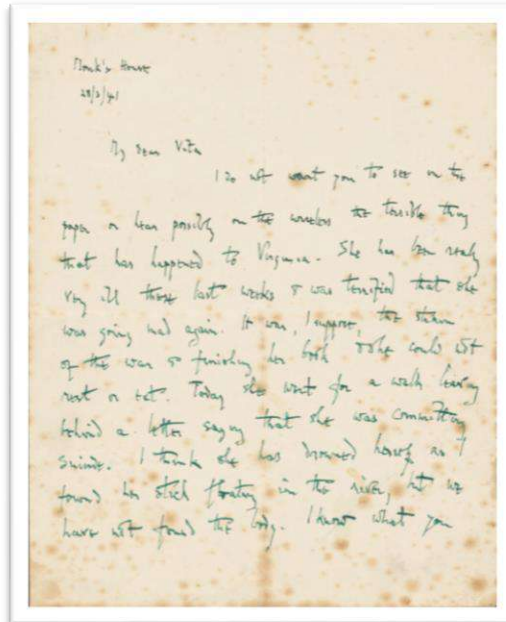 Monk's House
28/3/41
My dear Vita
I do not want you to see in the
paper or hear possibly on the wireless the terrible thing
that has happened to Virginia. She has been really
very ill these last weeks & was terrified that she
was going mad again. It was, I suppose, the strain
of the war & finishing her book & she could not
rest or eat. Today she went for a walk leaving
behind a letter saying that she was committing
suicide. I think she has drowned herself as I
found her stick floating in the river, but we
have not found the body. I know what you